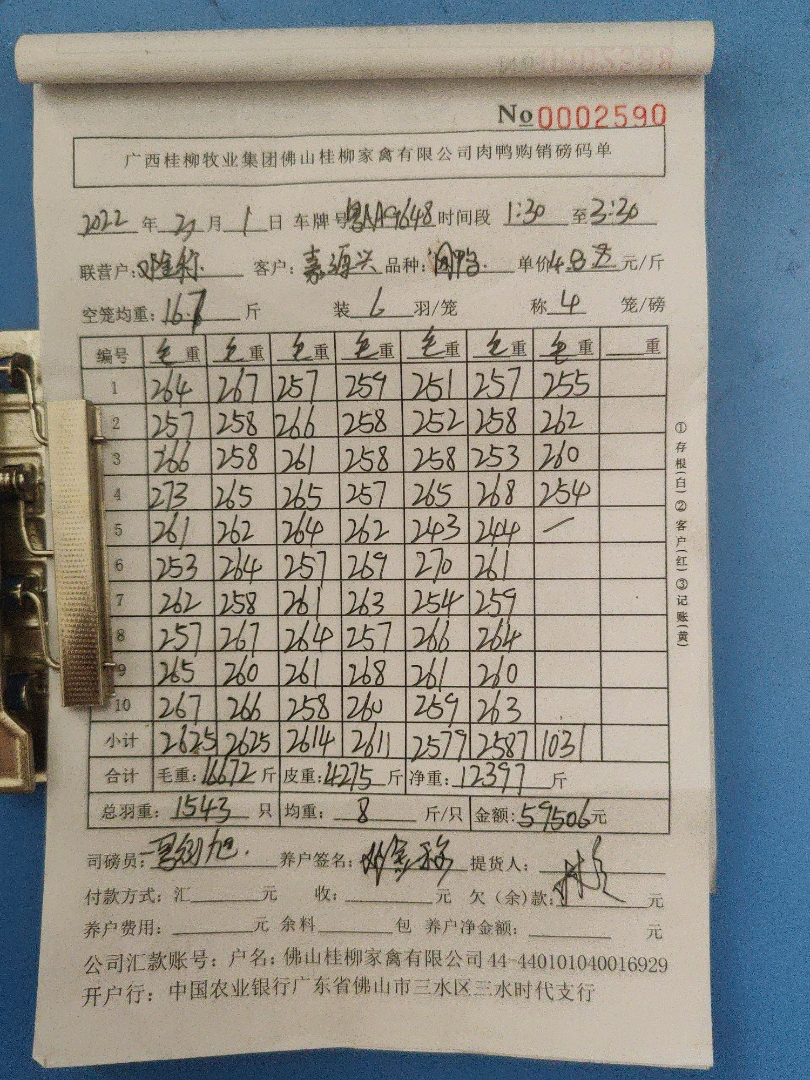 No 0002590
广西桂柳牧业集团佛山桂柳家禽有限公司肉鸭购销磅码单
2022 年 月 1 日 车牌号 A9648 时间段 1:30 至 3:30
联营户: 客户: 嘉源兴 品种: 单价 4.8 元/斤
空笼均重: 16.7 斤 装 6 羽/笼 称 4 笼/磅
编号 毛重 毛重 毛重 毛重 毛重 毛重 毛重 重
1 264 267 257 259 251 257 255
2 257 258 266 258 252 258 262
3 266 258 261 258 258 253 260
4 273 265 265 257 265 268 254
5 261 262 264 262 243 244 —
6 253 264 257 269 270 261
7 262 258 261 263 254 259
8 257 267 264 257 266 264
9 265 260 261 268 261 260
10 267 266 258 260 259 263
小计 2625 2625 2614 2611 2579 2587 1031
合计 毛重: 16672 斤 皮重: 4275 斤 净重: 12397 斤
总羽重: 1543 只 均重: 8 斤/只 金额: 59506 元
司磅员: 养户签名: 提货人:
付款方式: 汇 元 收: 元 欠(余)款: 元
养户费用: 元 余料 包 养户净金额: 元
公司汇款账号: 户名: 佛山桂柳家禽有限公司 44-440101040016929
开户行: 中国农业银行广东省佛山市三水区三水时代支行
①存根(白)②客户(红)③记账(黄)